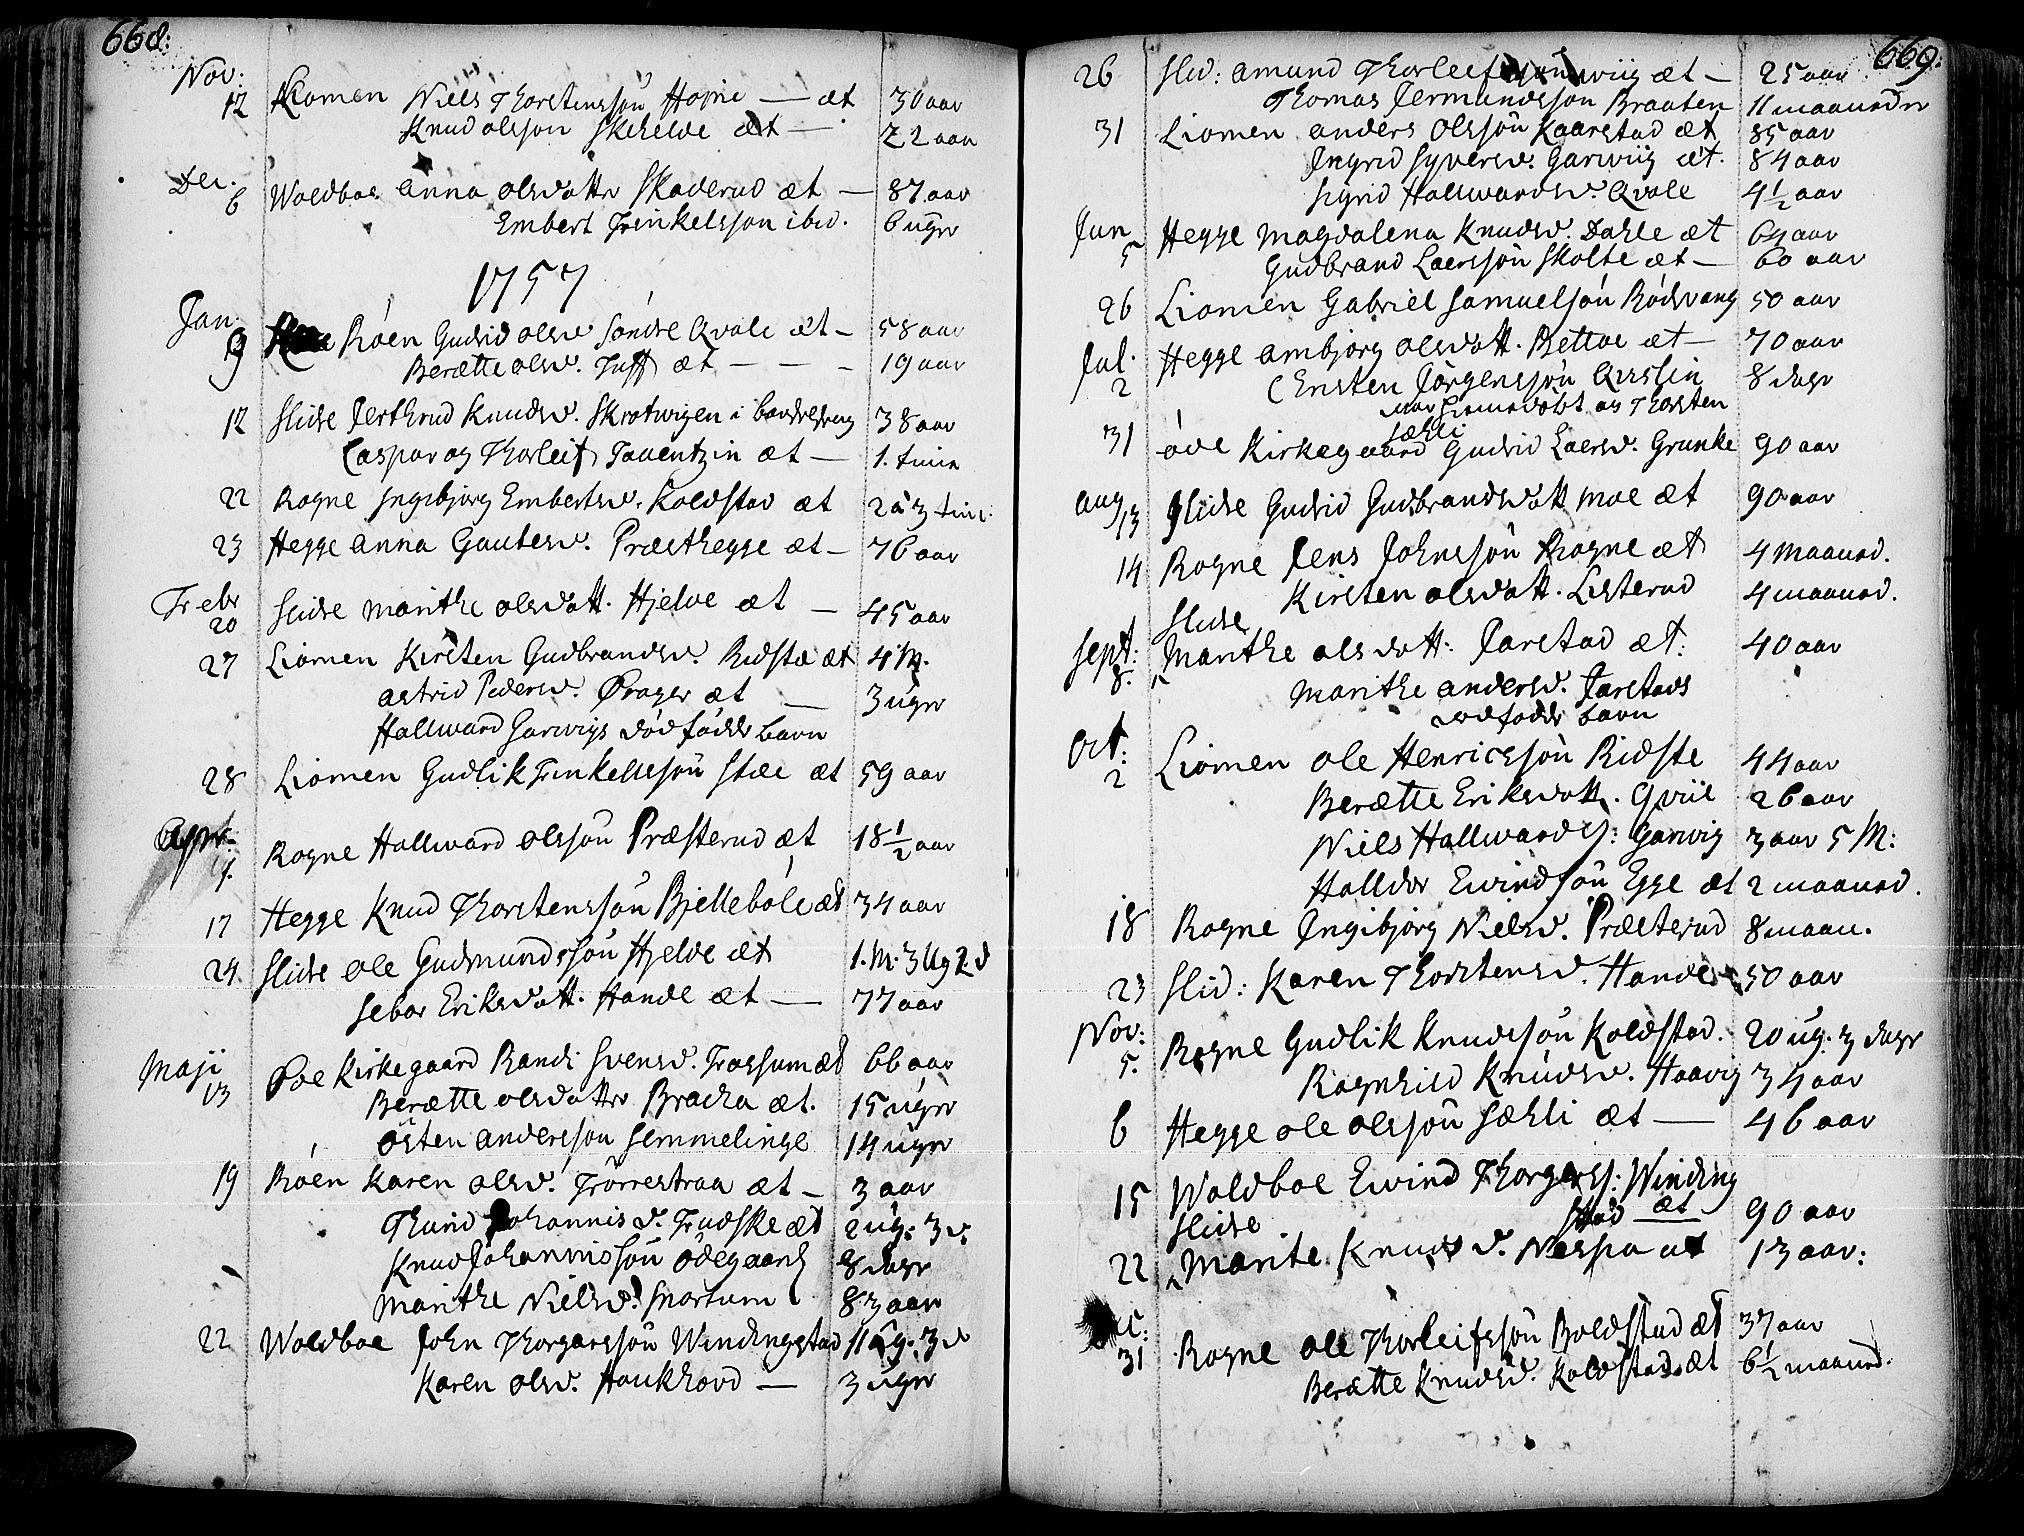 668:
Nov:
12 Liomen Niels Thorstenssøn Højne — æt 30 aar
Knud olssøn Skielde æt — 22 aar
Dec.
6 Woldboe anna olsdattr Skaderud æt — 87 aar
Embert Trinkelssøn ibid. 6 ugr
1757
Jan:
9 Røen Gudrid olsd. Søndre Qvale æt — 58 aar
Berætte olsd. Tuff æt — — — 19 aar
12 Slidre Jerthrud Knudsd. Skrotwigen i barselseng 38 aar
Caspar og Thorleif Tauentzin æt — 1. time
22 Rogne Ingebjørg Embertsd. Koldstad æt 2 à 3 tim:
23 Hegge anna Gautesd. Præsthegge æt — 76 aar
Febr
20 Slidre Marithe olsdatt. Hjelde æt — 45 aar
27 Liomen Kirsten Gudbrandsd. Ridste æt 4 M.
astrid Pedersd. Prager æt — 3 ugr
Hallward Garwigs dødfødde barn
28 Liomen Gudlik Trinkelssøn Stee æt 59 aar
Apr:
1. Rogne Hallward olssøn Præsterud æt 18 1/2 aar
17 Hegge Knud Thorstenssøn Bjellebøle æt 34 aar
24 Slidre ole Gudmundssøn Hjelde æt 1. M. 3 Ug 2 d
Sebor Eriksdatt. Hande æt — 77 aar
Maji
13 Øde Kirkegaard Randi Svensd. Fossum æt 66 aar
Berætte olsdattr Bracka æt. 15 ugr
østen anderssøn Semmelinge 14 ugr
19 Røen Karen olsd. Trørrestraa æt — 3 aar
Thurid Johannisd. Fudske æt 2 ug. 3 d.
Knud Johannissøn ødegaard 8 dagr
Marithe Nielsd. Snortum 83 aar
22 Woldboe John Thorgerssøn Windingstad 11 ug. 3 d
Karen olsd. Haukhord — 3 ugr
669.
26 Slid: amund Thorleifssøn wiig æt — 25 aar
Thomas Jermundssøn Braaten 11 maanedr
31 Liomen anders olssøn Kaarstad æt 85 aar
Ingrid Syversd. Garwiig æt. 84 aar
Sigrid Hallwardsd. Qvale 4 1/2 aar
Jun
5 Hegge Magdalena Knudsd. Dahle æt 64 aar
Gudbrand Laerssøn Skolte æt — 60 aar
26 Liomen Gabriel Samuelsøn Rødsvang 50 aar
Jul.
2 Hegge ambjørg olsdatt. Bettoe æt — 70 aar
Ensten Jørgenssøn Qvislin 8 dagr
og Thorsten
Sæhli
31 øde Kirkegaard Gudrid Laersd. Grunke 90 aar
Aug
13 Slidre Gudrid Gudbrandsdatt Moe æt 90 aar
14 Rogne Jens Johnssøn Rogne æt 4 maaned.
Kirsten olsdatt. Listerud 4 maaned.
Slidre
Sept:
8. Marithe olsdatt: Jarstad æt: 40 aar
Marithe andersd. Jarstads
dødfødde barn
Oct:
2 Liomen ole Henricssøn Ridste 44 aar
Berætte Eriksdatt. Qviie 26 aar
Niels Hallwards: Garwig 3 aar 5 M:
Halldor Ewindsøn Egge æt 2 maaned.
18 Rogne Ingibjørg Nielsd. Præsterud 8 maan.
23 Slid: Karen Thorstensd. Hande 50 aar
Nov:
5. Rogne Gudlik Knudssøn Koldstad. 20 ug. 3 dagr
Ragnhild Knudsd. Haavig 34 aar
6 Hegge ole olssøn Sæhli æt — 46 aar
15 Woldboe Ewind Thorgers: Winding
stad æt 90 aar
Slidre
22 Marite Knudsd. Nespa æt 13 aar:
31 Rogne ole Thorleifssøn Boldstad æt 37 aar
Berætte Knudsd. Koldstad æt 6 1/2 maaned.